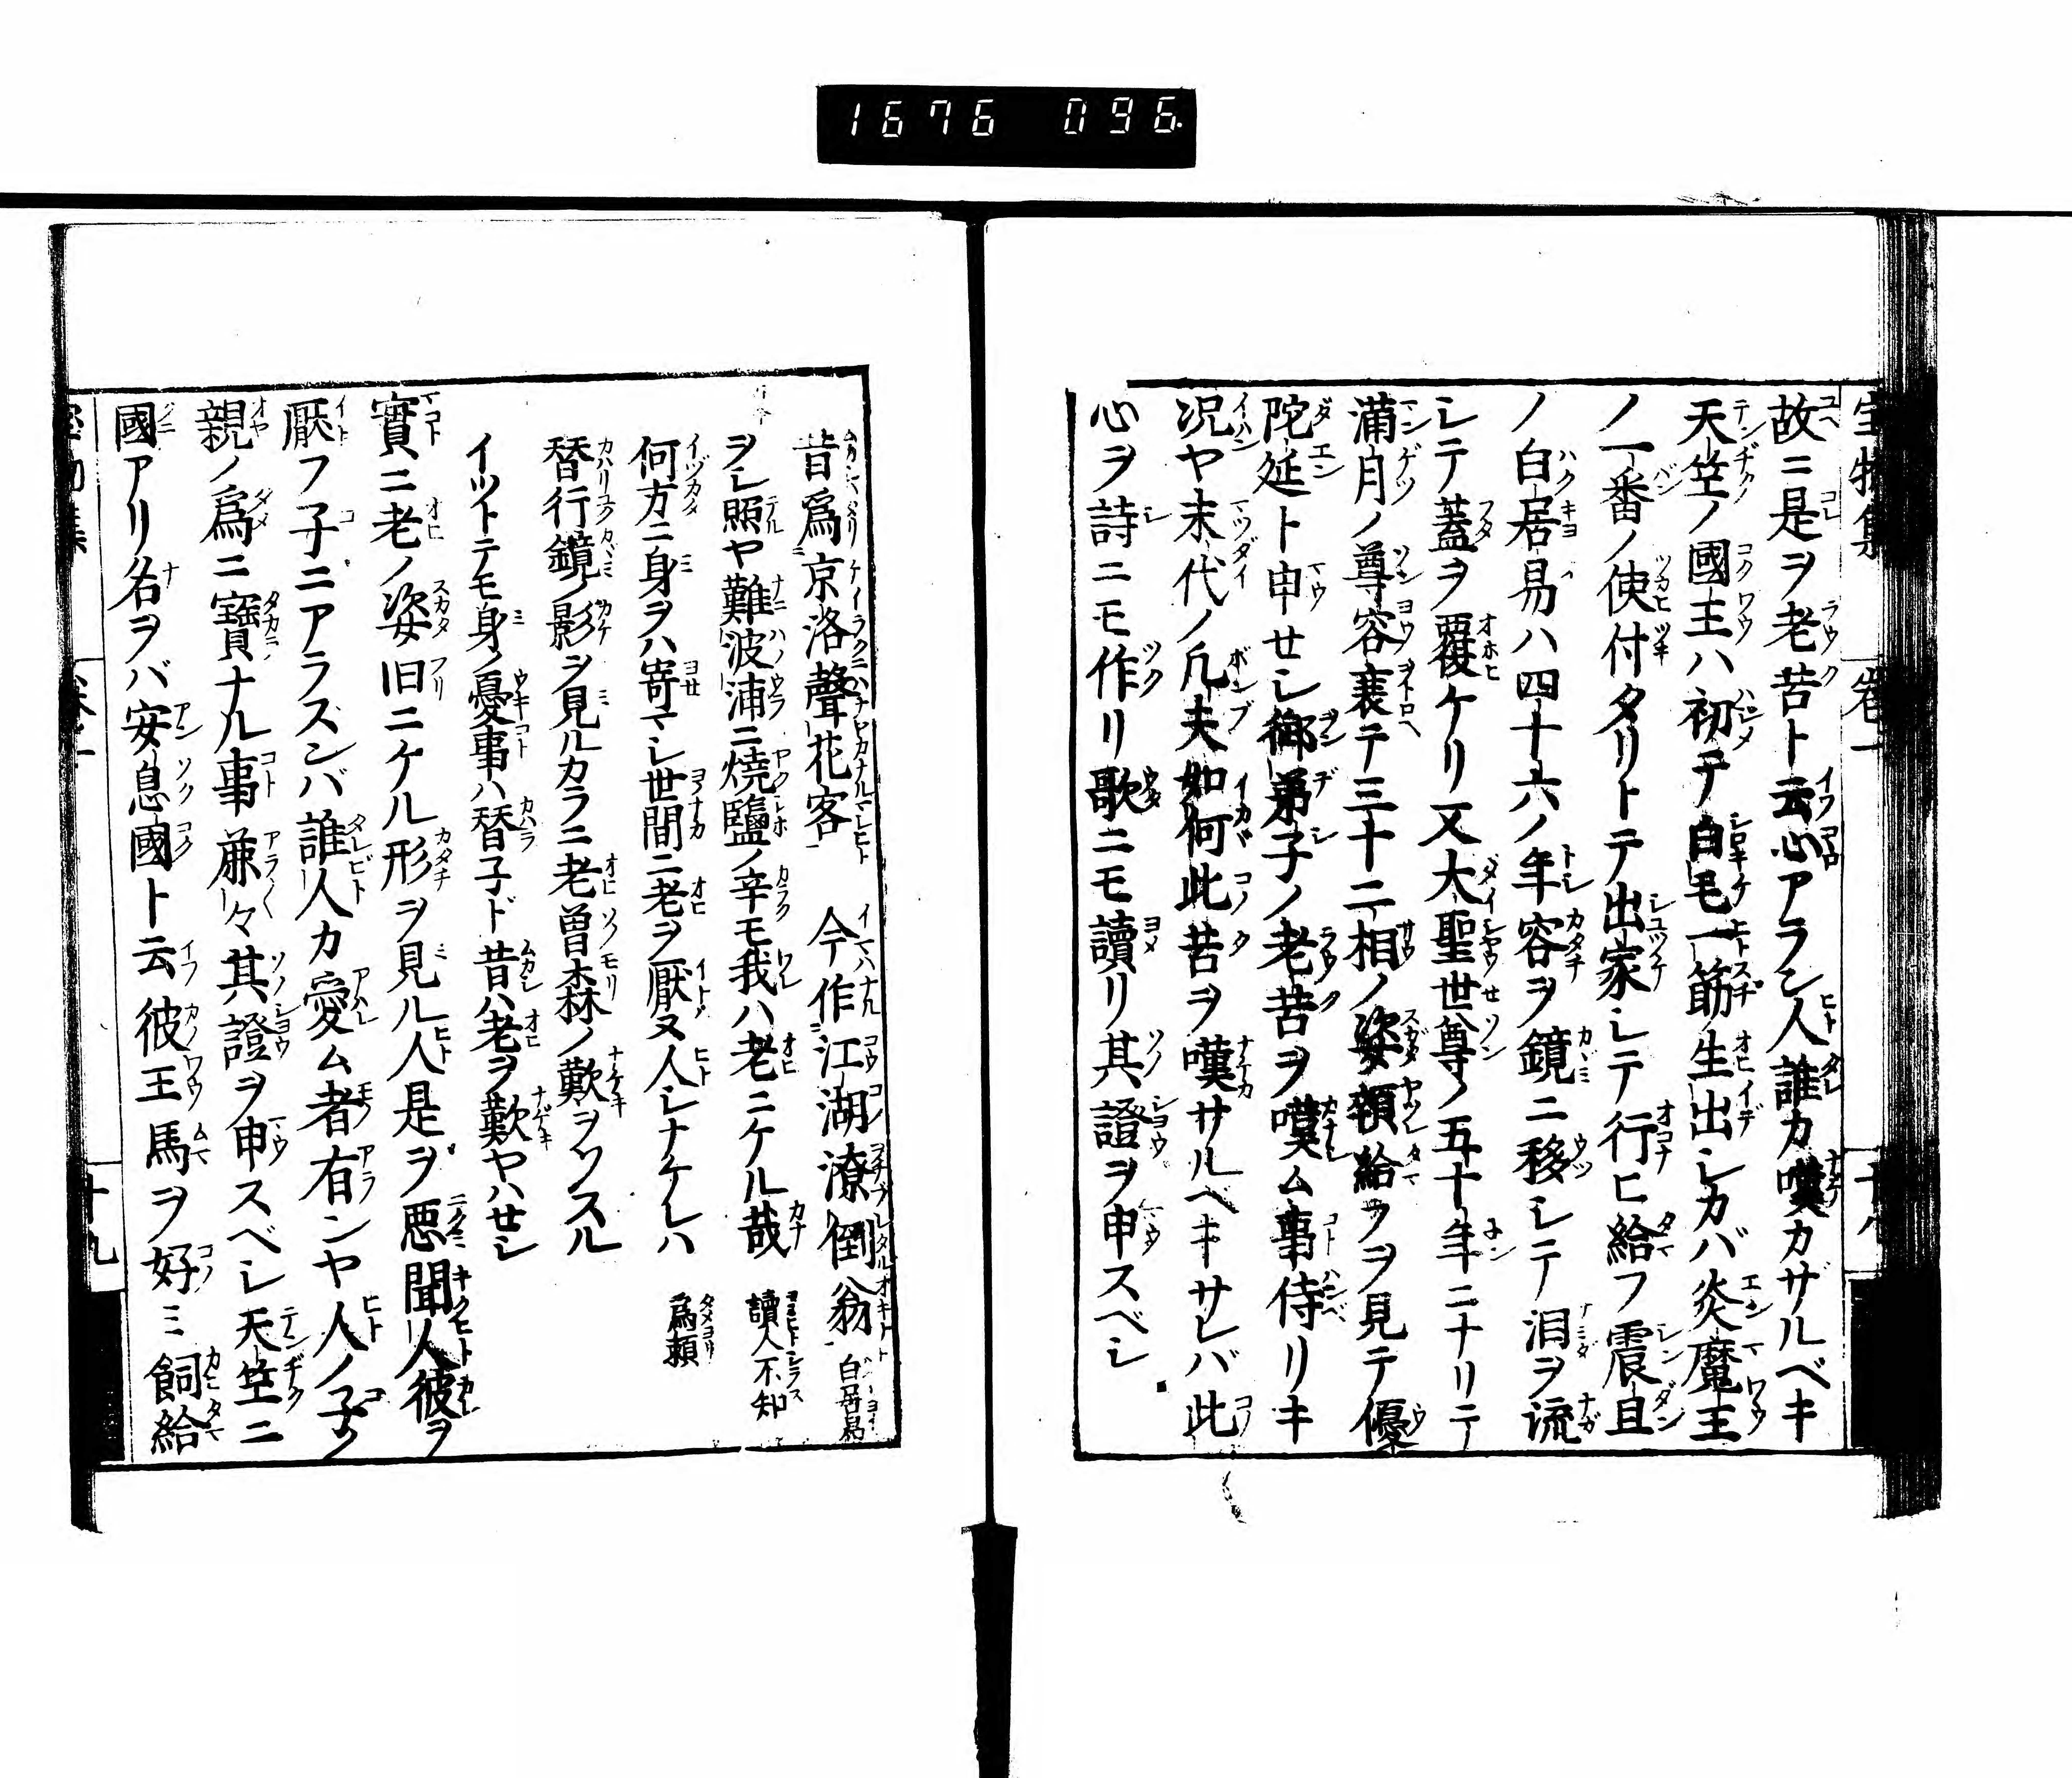 1676 096.
故ニ是ヲ老苦ト云心アラン人誰カ嘆カザルベキ
天竺ノ國王ハ初テ白毛一筋生出シカバ炎魔王
ノ一番ノ使付タリトテ出家シテ行ヒ給フ震旦
ノ白居易ハ四十六ノ年容ヲ鏡ニ移シテ泪ヲ流
シテ蓋ヲ覆ケリ又大聖世尊ノ五十年ニナリテ
滿月ノ尊容衰テ三十二相ノ姿顇給フヲ見テ優
陀延ト申セシ御弟子ノ老苦ヲ嘆ム事侍リキ
况ヤ末代ノ凡夫如何此苦ヲ嘆サルヘキサレバ此
心ヲ詩ニモ作リ歌ニモ讀リ其證ヲ申スベシ
昔爲京洛聲花客 今作江湖潦倒翁 白居易
ヲシ照ヤ難波浦ニ燒鹽ノ辛モ我ハ老ニケル哉 讀人不知
何方ニ身ヲハ寄マシ世間ニ老ヲ厭ヌ人シナケレハ 爲頼
替行鏡ノ影ヲ見ルカラニ老曽森ノ歎ヲソスル
イツトテモ身ノ憂事ハ替子ド昔ハ老ヲ歎ヤハセシ
實ニ老ノ姿旧ニケル形ヲ見ル人是ヲ悪聞人彼ヲ
厭フ子ニアラスンバ誰人カ愛ム者有ンヤ人ノ子ノ
親ノ爲ニ寶ナル事䔥々其證ヲ申スベシ天竺ニ
國アリ名ヲバ安息國ト云彼王馬ヲ好ミ飼給